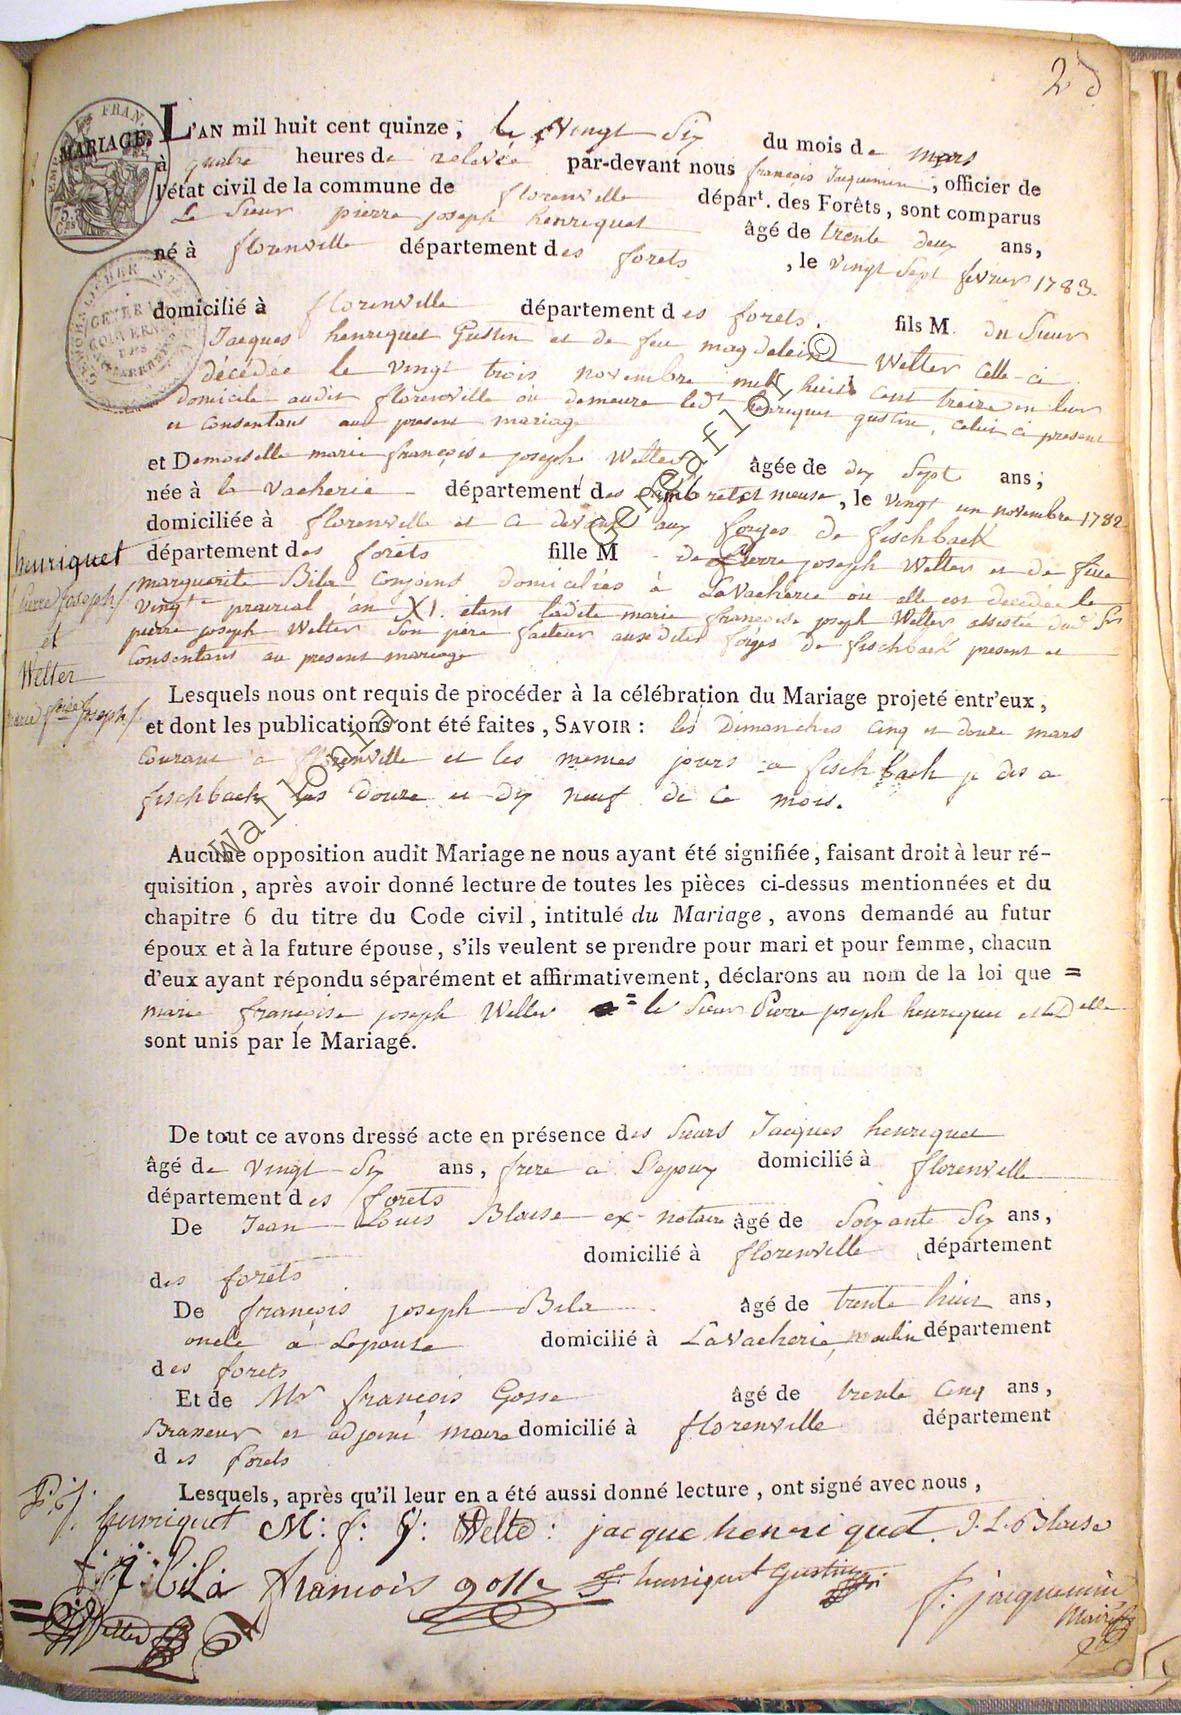 2
MARIAGE.
L'AN mil huit cent quinze, le vingt Six du mois de mars
à quatre heures de relevée par-devant nous françois Jacquemin, officier de
l'état civil de la commune de florenville départ. des Forêts, sont comparus
Le Sieur pierre joseph henriquet âgé de trente deux ans,
né à florenville département des forets, le vingt Sept fevrier 1783.
domicilié à florenville département des forets. fils M du Sieur
Jacques henriquet Gustin et de feu magdeleine Welter celle-ci
décédée le vingt trois novembre mil huit cent treize en leur
domicile audit florenville où demeure led.t henriquet gustin, celui ci present
et consentant au present mariage
et Demoiselle marie françoise joseph Welter âgée de dix Sept ans;
née à la vacherie département de Sambre et meuse, le vingt un novembre 1782
domiciliée à florenville et ci devant aux forges de fischback
département des forêts fille M de Pierre joseph Welter et de feue
marguerite Bila conjoins domiciliés à Lavacherie où elle est décédée le
vingt prairial an XI. étant ladite marie françoise joseph Welter assistée dud Sr
pierre joseph Welter Son père facteur auxdites forges de fischback present et
Consentant au present mariage
henriquet
pierre joseph
et
Welter
marie f.oise joseph
Lesquels nous ont requis de procéder à la célébration du Mariage projeté entr'eux,
et dont les publications ont été faites, SAVOIR: les Dimanches cinq et douze mars
Courant a florenville et les memes jours a fischback je dis a
fischback les douze et dix neuf de ce mois.
Aucune opposition audit Mariage ne nous ayant été signifiée, faisant droit à leur ré-
quisition, après avoir donné lecture de toutes les pièces ci-dessus mentionnées et du
chapitre 6 du titre du Code civil, intitulé du Mariage, avons demandé au futur
époux et à la future épouse, s'ils veulent se prendre pour mari et pour femme, chacun
d'eux ayant répondu séparément et affirmativement, déclarons au nom de la loi que =
marie françoise joseph Welter = le Sieur Pierre joseph henriquet et la Delle
sont unis par le Mariage.
De tout ce avons dressé acte en présence des Sieurs Jacques henriquet
âgé de vingt Six ans, frere a L'epoux domicilié à florenville
département des forets
De Jean Louis Blaise ex-notaire âgé de Soixante Six ans,
domicilié à florenville département
des forets
De françois joseph Bila âgé de trente huit ans,
oncle à Lepouse domicilié à Lavacherie, moulin département
des forets
Et de Mr françois Gosse âgé de trente Cinq ans,
Brasseur et adjoint maire domicilié à florenville département
des forets
Lesquels, après qu'il leur en a été aussi donné lecture, ont signé avec nous,
P: j: henriquet M: f: J: Welte: jacque henriquet J. L. Blaise
f: j: bila francois gosse henriquet Gustin f: jacquemin
Maire
Welter
Wallonia Geneaflor ©